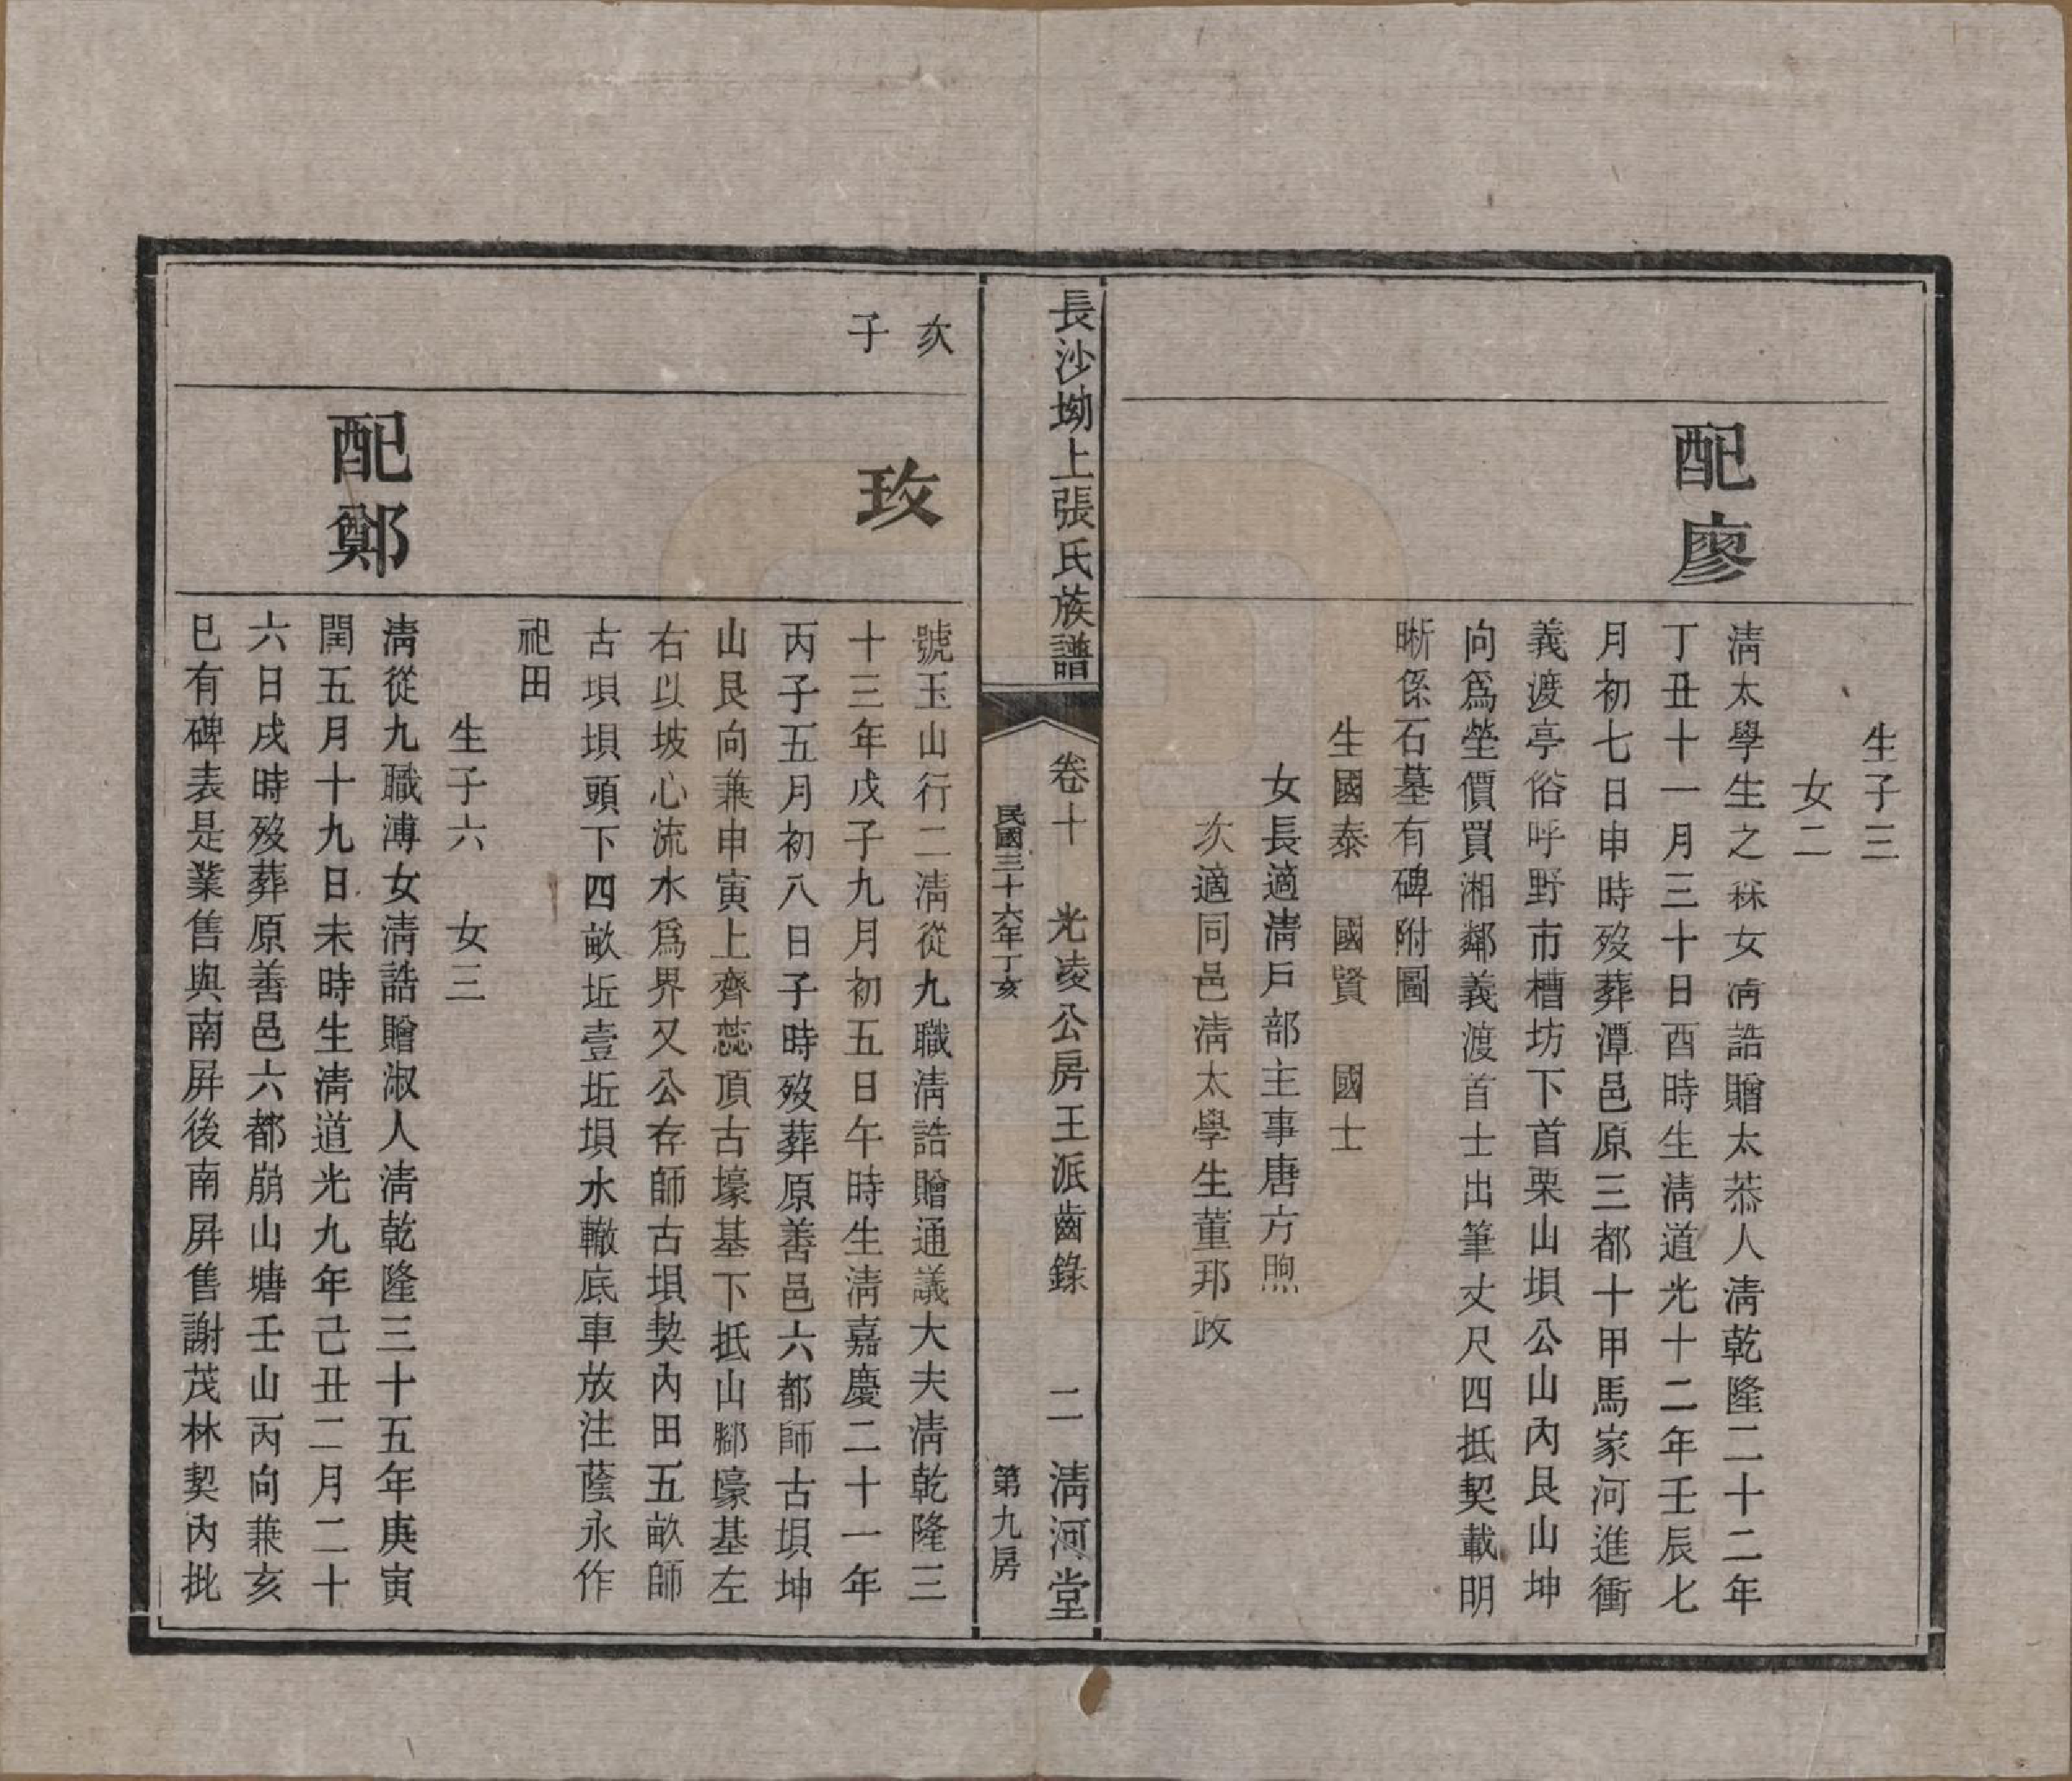 生子三
女二
配廖
淸太學生之霖女淸誥贈太恭人淸乾隆二十二年
丁丑十一月三十日酉時生淸道光十二年壬辰七
月初七日申時歿葬潭邑原三都十甲馬家河進衝
義渡亭俗呼野市槽坊下首栗山垻公山內艮山坤
向爲塋價買湘鄰義渡首士出筆丈尺四抵契載明
晰係石墓有碑附圖
生國泰 國賢 國士
女長適淸戶部主事唐方煦
次適同邑淸太學生董邦政
長沙坳上張氏族譜
卷十 光凌公房王派齒錄 二 淸河堂
民國三十六年丁亥 第九房
次
子
玫
號玉山行二淸從九職淸誥贈通議大夫淸乾隆三
十三年戊子九月初五日午時生淸嘉慶二十一年
丙子五月初八日子時歿葬原善邑六都師古垻坤
山艮向兼申寅上齊蕊頂古壕基下抵山腳壕基左
右以坡心流水爲界又公存師古垻契內田五畝師
古垻垻頭下四畝坵壹坵垻水轍底車放注蔭永作
祀田
生子六 女三
配鄭
淸從九職溥女淸誥贈淑人淸乾隆三十五年庚寅
閏五月十九日未時生淸道光九年己丑二月二十
六日戌時歿葬原善邑六都崩山塘壬山丙向兼亥
巳有碑表是業售與南屛後南屛售謝茂林契內批